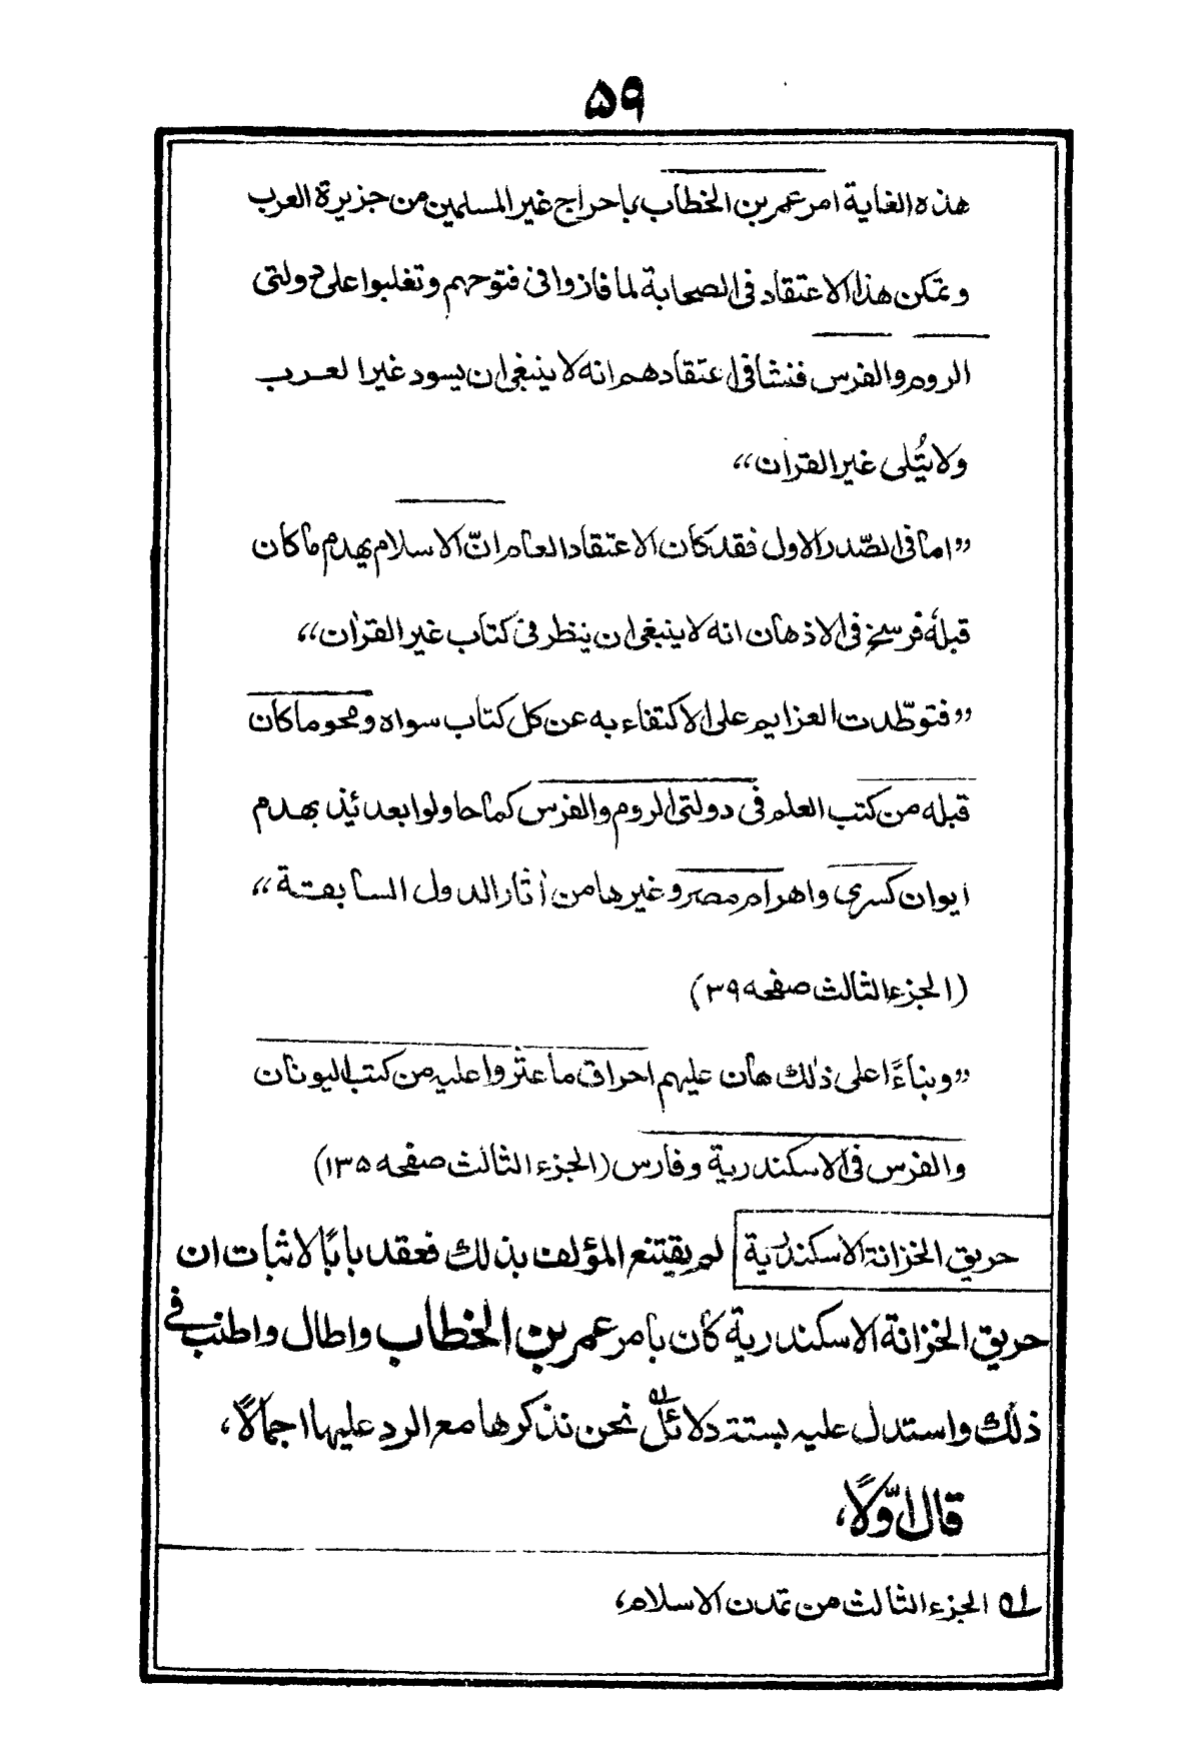 ۵۹
هذه الغاية امر عمر بن الخطاب، باحراج غير المسلمين من جزيرة العرب
وتمكن هذا الاعتقاد فى الصحابة لما فازوا فى فتوحهم وتغلبوا على دولتى
الروم والفرس فنشا فى اعتقادهم انه لا ينبغى ان يسود غير العرب
ولا يُتلى غير القران،،
,,اما فى الصّدر الاول فقد كان الاعتقاد العام انّ الاسلام يهدم ما كان
قبلهٗ فرسخ فى الاذهان انه لا ينبغى ان ينظر فى كتاب غير القران،،
,,فتوطّدت العزايم على الاكتفاء به عن كل كتاب سواه ومحو ما كان
قبله من كتب العلم فى دولتى الروم والفرس كما حاولوا بعدئذٍ بهدم
ايوان كسرى واهرام مصر وغيرها من أثار الدول السابقة،،
(الجزء الثالث صفحه ۳۹)
,,وبناءً اعلى ذلك هان عليهم احراق ما عثروا عليه من كتب اليونان
والفرس فى الاسكندرية وفارس (الجزء الثالث صفحه ۱۳۵)
حريق الخزانة الاسكندرية لم يقتنع المؤلف بذلك فعقد بابًا لاثبات ان
حريق الخزانة الاسكندرية كان بامر عمر بن الخطاب واطال واطنب فى
ذلك واستدل عليه بستة دلائل له نحن نذكرها مع الرد عليها اجمالاً،
قال اوّلاً،
له الجزء الثالث من تمدن الاسلام،